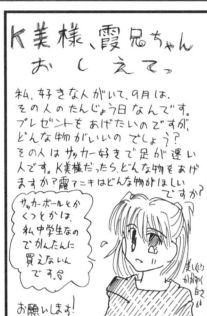 K美様、霞兄ちゃん
おしえてっ
私、好きな人がいて、9月は、
その人のたんじょう日なんです。
プレゼントをあげたいのですが、
どんな物がいいのでしょう?
その人はサッカー好きで足が速い
人です。K美様だったら、どんな物をあげ
ますか?霞アニキはどんな物がほしい
ですか?
サッカーボールとか
くつとかは、
私中学生なの
でかんたんに
買えないん
です。
お願いします!